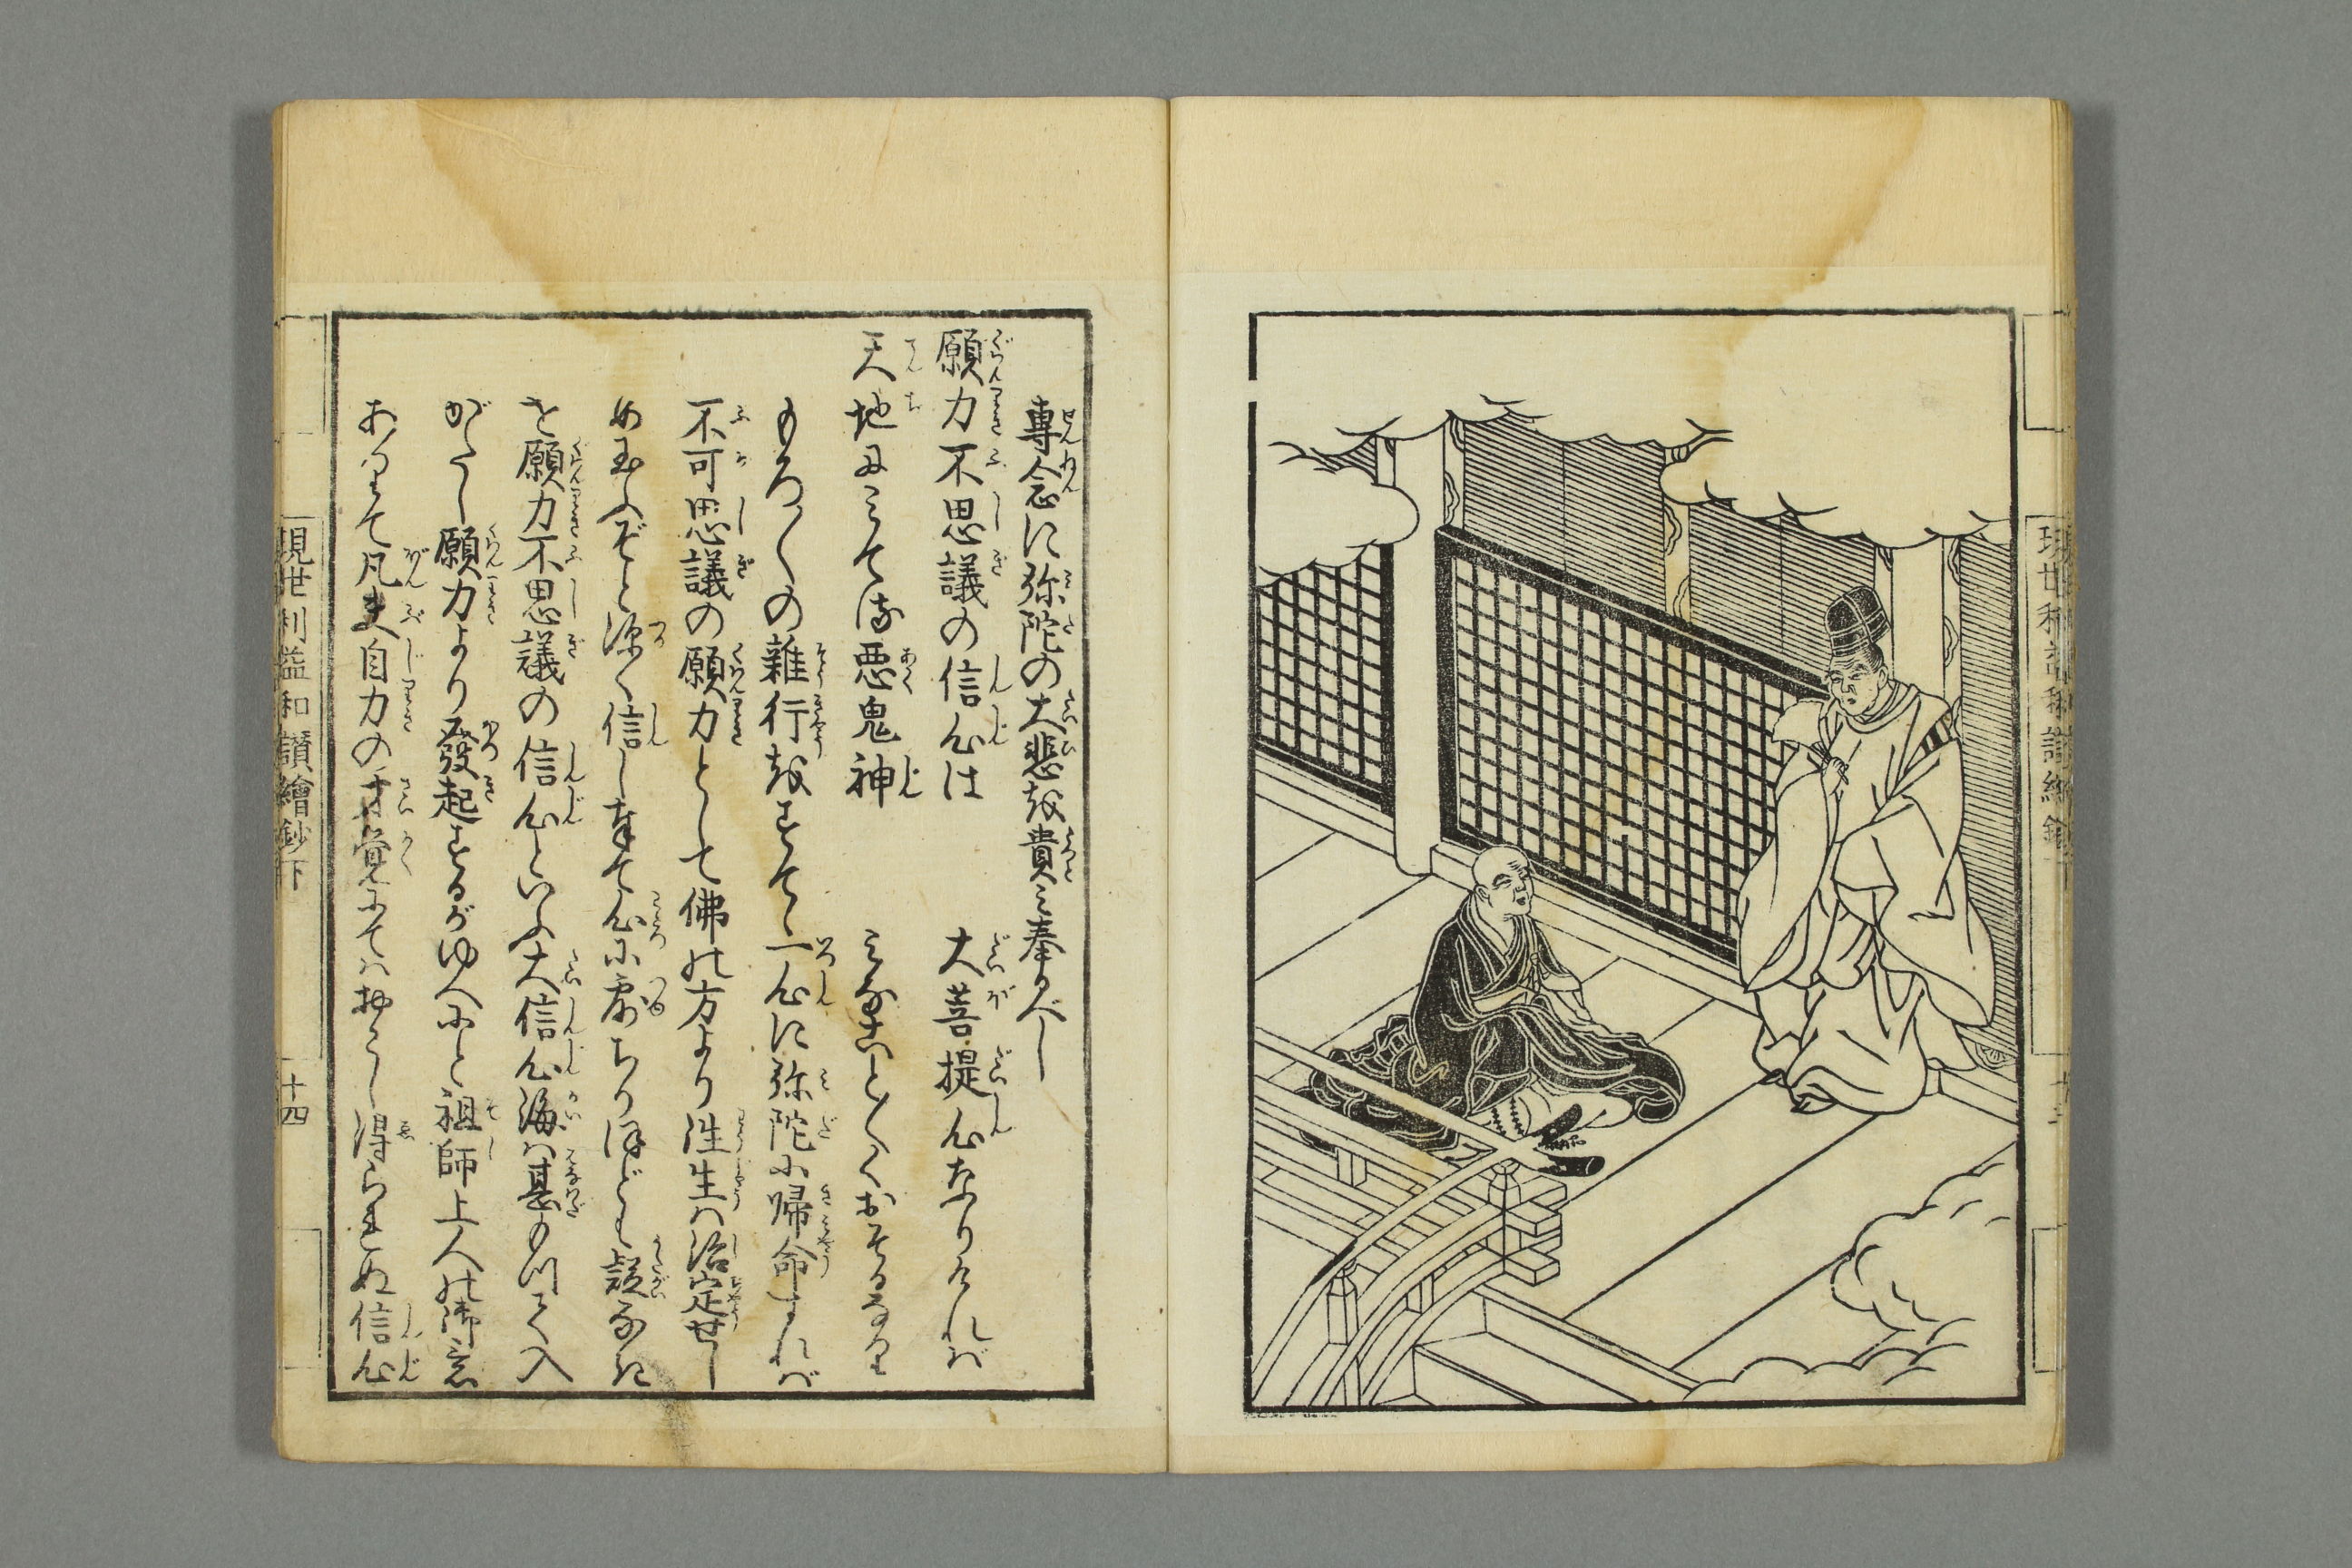 專念に弥陀の大悲を貴み奉るべし
願力不思議の信心は　大菩提心なりければ
天地にみてる悪鬼神　みなことごとくおそるなり
もろ〳〵の雜行をすてゝ一心に弥陀に帰命すれば
不可思議の願力として佛の方より往生は治定せし
め玉ふぞと深く信し奉て心に露ちりほども疑なき
を願力不思議の信心といふ大信心海は甚もつて入
がたし願力より發起するがゆへにと祖師上人の御意
ありて凡夫自力の才覚にてはおこし得られぬ信心
現世利益和讃繪鈔下
十四